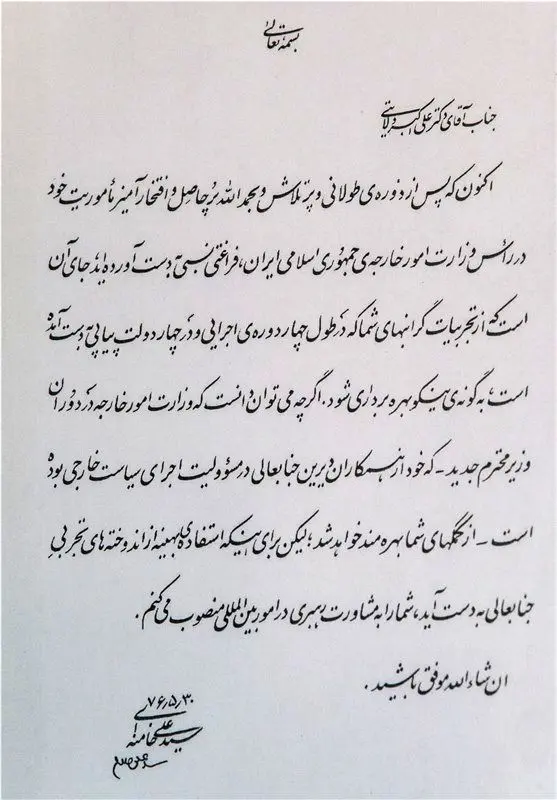 بسمه تعالی
جناب آقای دکتر علی اکبر ولایتی
اکنون که پس از دوره‌ی طولانی و پرتلاش و بحمدالله پرحاصل و افتخارآمیز مأموریت خود
در رأس وزارت امور خارجه‌ی جمهوری اسلامی ایران، فراغتی نسبی به دست آورده‌اید جای آن
است که از تجربیات گرانبهای شما که در طول چهار دوره‌ی اجرایی و در چهار دولت پیاپی به دست آمده
است، به گونه‌ی نیکو بهره برداری شود. اگرچه می‌توان دانست که وزارت امور خارجه در دوران
وزیر محترم جدید - که خود از همکاران دیرین جنابعالی در مسؤولیت اجرای سیاست خارجی بوده
است - از کمکهای شما بهره‌مند خواهد شد؛ لیکن برای اینکه استفاده‌ی بهینه از اندوخته‌های تجربی
جنابعالی به دست آید، شما را به مشاورت رهبری در امور بین‌المللی منصوب می‌کنم.
ان شاءالله موفق باشید.
۷۶٫۵٫۳۰
سید علی خامنه‌ای